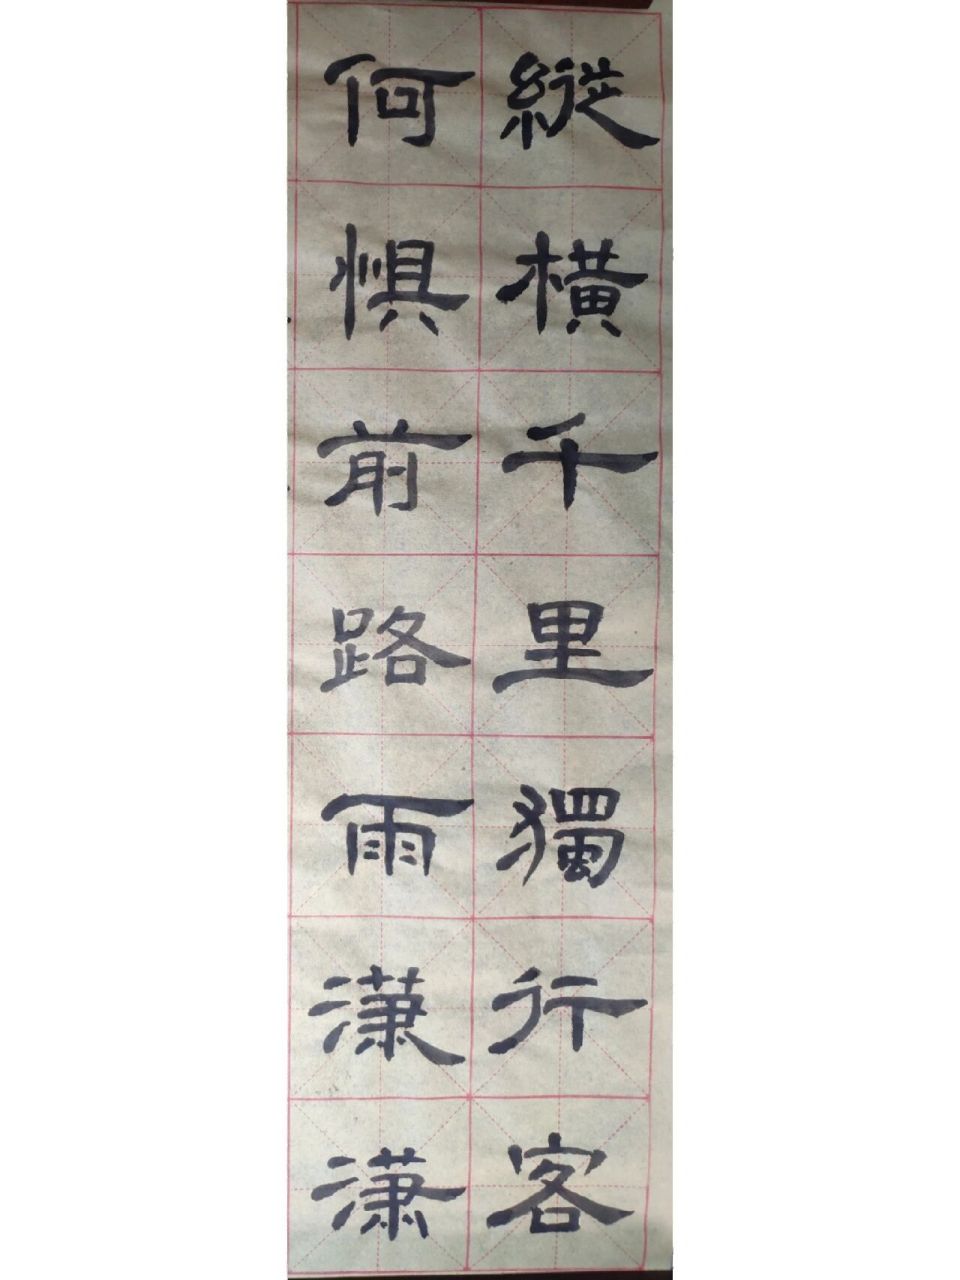 縱橫千里獨行客
何懼前路雨潇潇